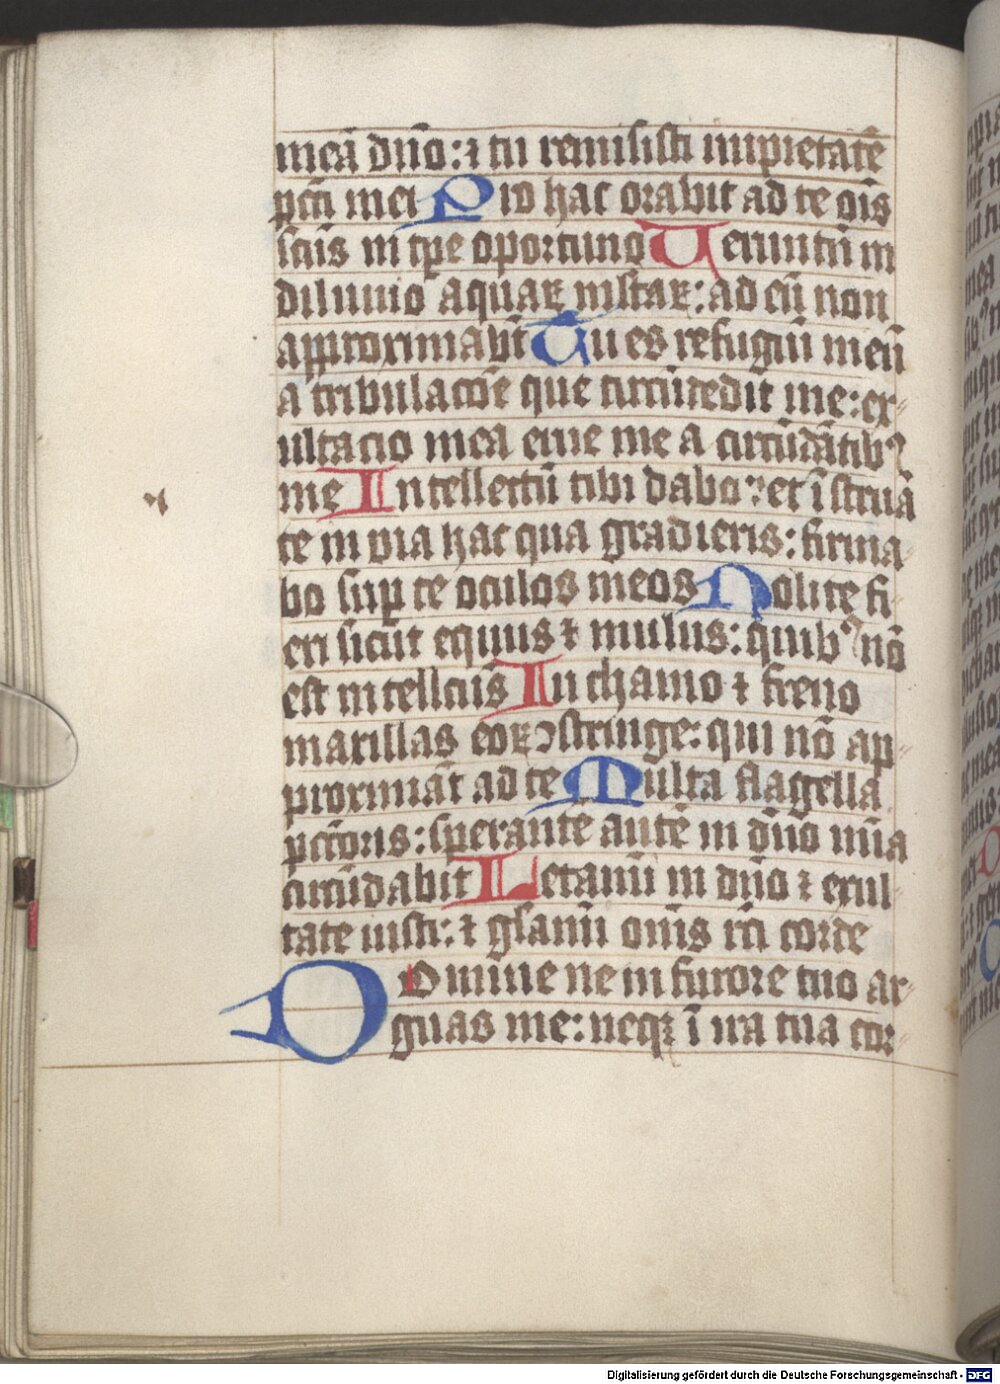 meā dn̄o: ⁊ tu remisisti impietatē
pcc̄i mei Pro hac orabit ad te oīs
sc̄us in tp̄e oportuno Ueruntn̄ in
diluuio aquaꝝ mltaꝝ: ad eū non
approximabūt Tu es refugiū meū
a tribulacōe que circūdedit me: ex
ultacio mea erue me a circūdātibꝰ
me Intellectū tibi dabo: et īstruā
te in via hac qua gradieris: firma
bo sup̄ te oculos meos Nolite fi
eri sicut equus ⁊ mulus: quibꝰ nō
est intellcūs In chamo ⁊ freno
maxillas eoꝝ ꝯstringe: qui nō ap
proximāt ad te Multa flagella
pcc̄oris: sperantē autē in dn̄o mīa
circūdabit Letamī in dn̄o ⁊ exul
tate iusti: ⁊ gl̄amī om̄s rc̄i corde
Domine ne in furore tuo ar
guas me: neqꝫ ī ira tua cor
Digitalisierung gefördert durch die Deutsche Forschungsgemeinschaft - DFG